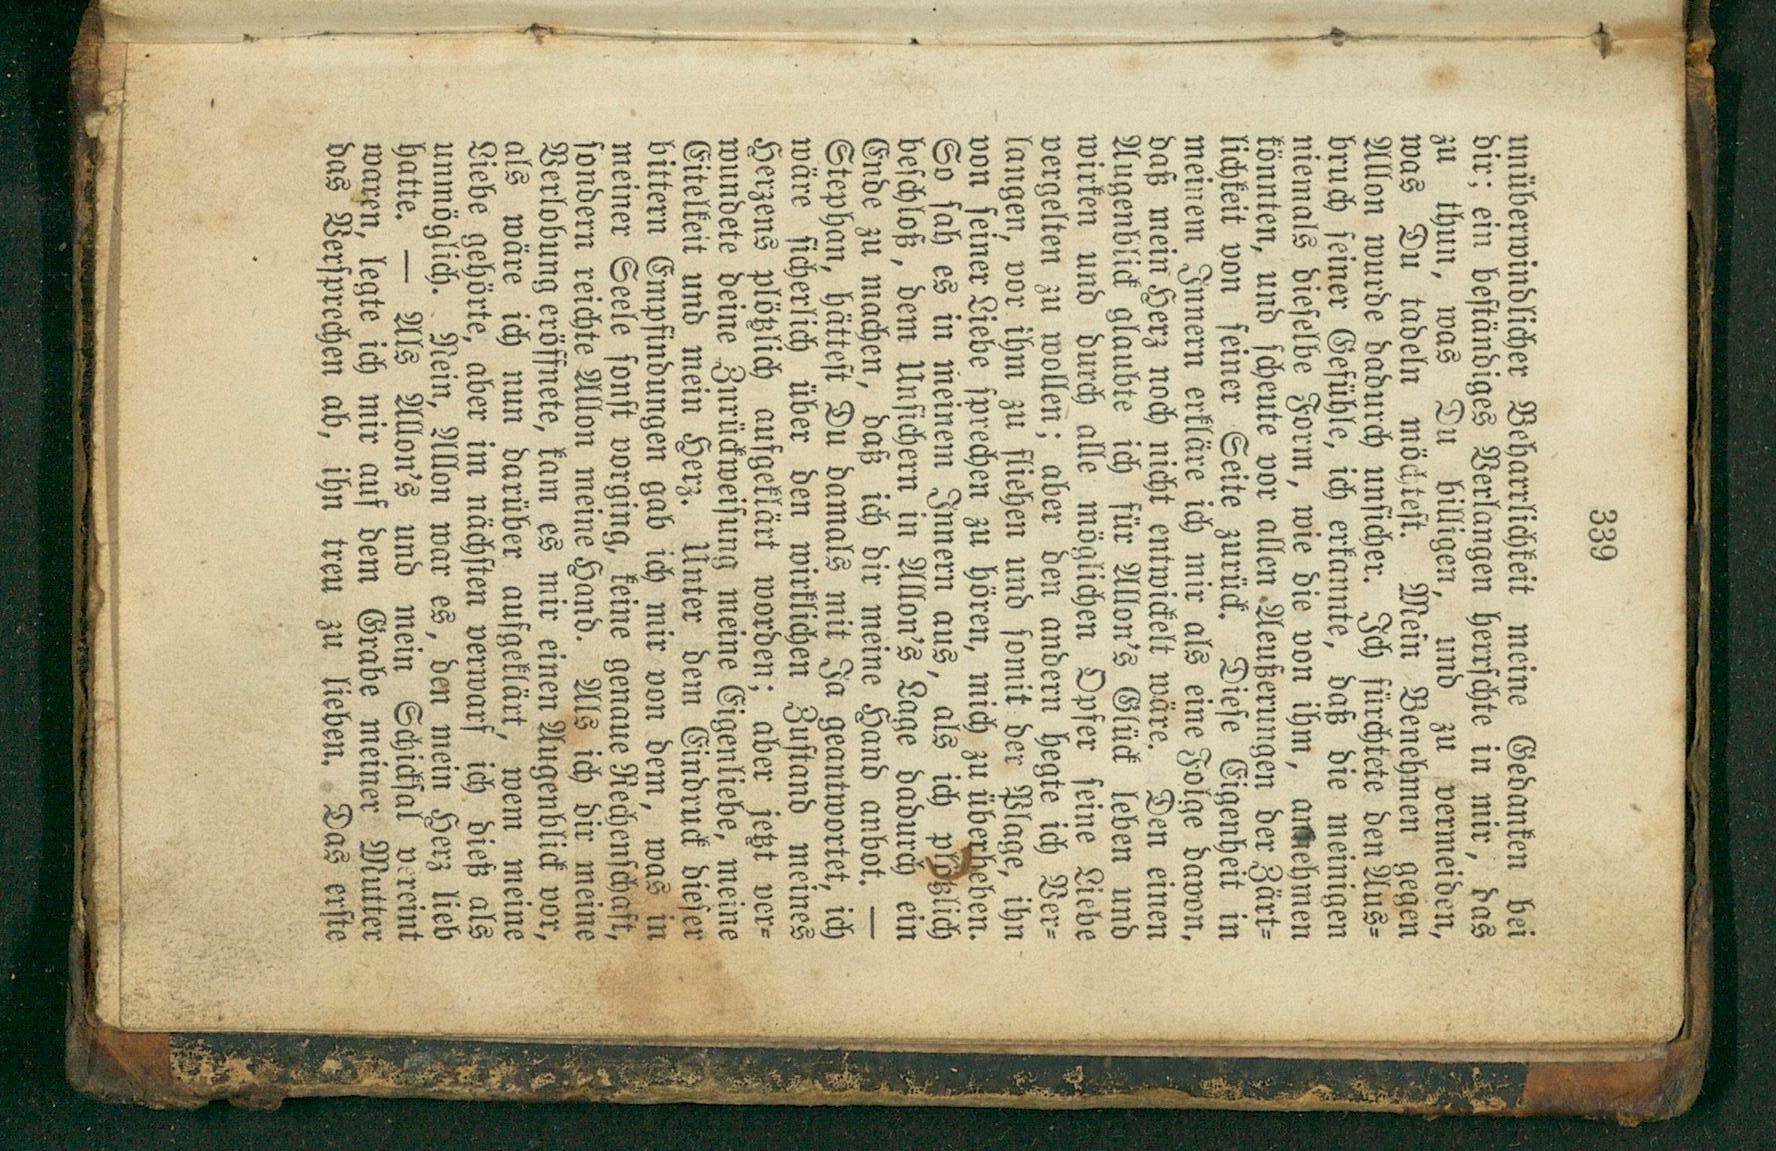 339
unüberwindlicher Beharrlichkeit meine Gedanken bei
dir; ein beständiges Verlangen herrschte in mir, das
zu thun, was Du billigen, und zu vermeiden,
was Du tadeln möchtest. Mein Benehmen gegen
Allon wurde dadurch unsicher. Ich fürchtete den Aus=
bruch seiner Gefühle, ich erkannte, daß die meinigen
niemals dieselbe Form, wie die von ihm, annehmen
könnten, und scheute vor allen Aeußerungen der Zärt=
lichkeit von seiner Seite zurück. Diese Eigenheit in
meinem Innern erkläre ich mir als eine Folge davon,
daß mein Herz noch nicht entwickelt wäre. Den einen
Augenblick glaubte ich für Allon's Glück leben und
wirken und durch alle möglichen Opfer seine Liebe
vergelten zu wollen; aber den andern hegte ich Ver=
langen, vor ihm zu fliehen und somit der Plage, ihn
von seiner Liebe sprechen zu hören, mich zu überheben.
So sah es in meinem Innern aus, als ich plötzlich
beschloß, dem Unsichern in Allon's Lage dadurch ein
Ende zu machen, daß ich dir meine Hand anbot. —
Stephan, hättest Du damals mit Ja geantwortet, ich
wäre sicherlich über den wirklichen Zustand meines
Herzens plötzlich aufgeklärt worden; aber jetzt ver=
wundete deine Zurückweisung meine Eigenliebe, meine
Eitelkeit und mein Herz. Unter dem Eindruck dieser
bittern Empfindungen gab ich mir von dem, was in
meiner Seele sonst vorging, keine genaue Rechenschaft,
sondern reichte Allon meine Hand. Als ich dir meine
Verlobung eröffnete, kam es mir einen Augenblick vor,
als wäre ich nun darüber aufgeklärt, wem meine
Liebe gehörte, aber im nächsten verwarf ich dieß als
unmöglich. Nein, Allon war es, den mein Herz lieb
hatte. — Als Allon's und mein Schicksal vereint
waren, legte ich mir auf dem Grabe meiner Mutter
das Versprechen ab, ihn treu zu lieben. Das erste